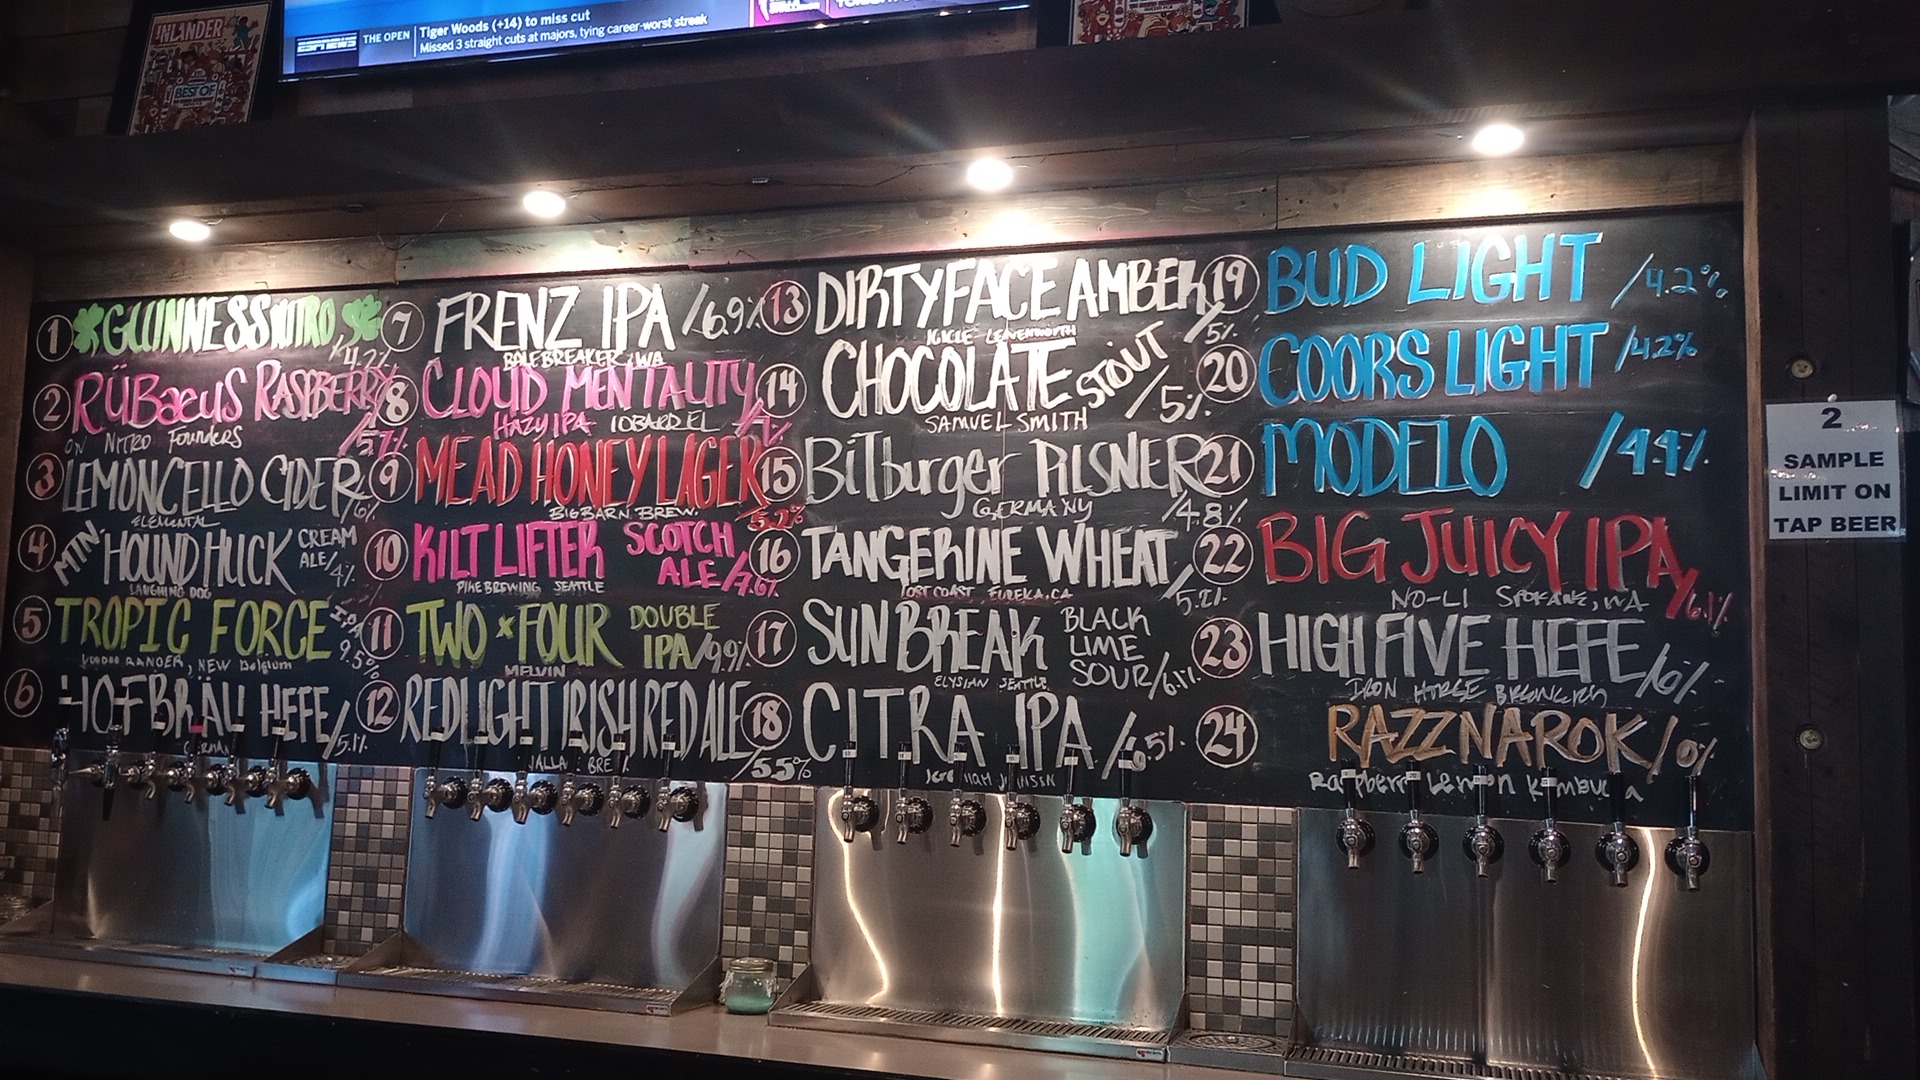 INLANDER
BEST OF
ESPNEWS
THE OPEN
Tiger Woods (+14) to miss cut
Missed 3 straight cuts at majors, tying career-worst streak
1 GUINNESS NITRO
/4.2%
2 RÜBaeuS RASPBERRY
ON NITRO Founders /5.7%
3 LEMONCELLO CIDER /6%
ELEMENTAL
4 MTN HOUND HUCK CREAM ALE/4%
LAUGHING DOG
5 TROPIC FORCE IPA 9.5%
VOODOO RANGER, NEW Belgium
6 HOFBRÄU HEFE /5.1%
GERMANY
7 FRENZ IPA /6.9%
BALEBREAKER, WA
8 CLOUD MENTALITY
HAZY IPA 10BARREL /7%
9 MEAD HONEY LAGER
BIG BARN BREW. /5.2%
10 KILT LIFTER SCOTCH ALE/7.6%
PIKE BREWING SEATTLE
11 TWO x FOUR DOUBLE IPA/9.9%
MELVIN
12 REDLIGHT IRISH RED ALE
/5.5%
13 DIRTYFACE AMBER
ICICLE LEAVENWORTH /5%
14 CHOCOLATE STOUT /5%
SAMUEL SMITH
15 Bitburger PILSNER
GERMANY /4.8%
16 TANGERINE WHEAT
LOST COAST EUREKA, CA /5.2%
17 SUN BREAK BLACK LIME SOUR/6.1%
ELYSIAN SEATTLE
18 CITRA IPA /6.5%
19 BUD LIGHT /4.2%
20 COORS LIGHT /4.2%
21 MODELO /4.4%
22 BIG JUICY IPA
NO-LI SPOKANE, WA /6.1%
23 HIGH FIVE HEFE /6%
IRON HORSE BREWERY
24 RAZZNAROK /0%
Raspberry Lemon Kombucha
2
SAMPLE
LIMIT ON
TAP BEER